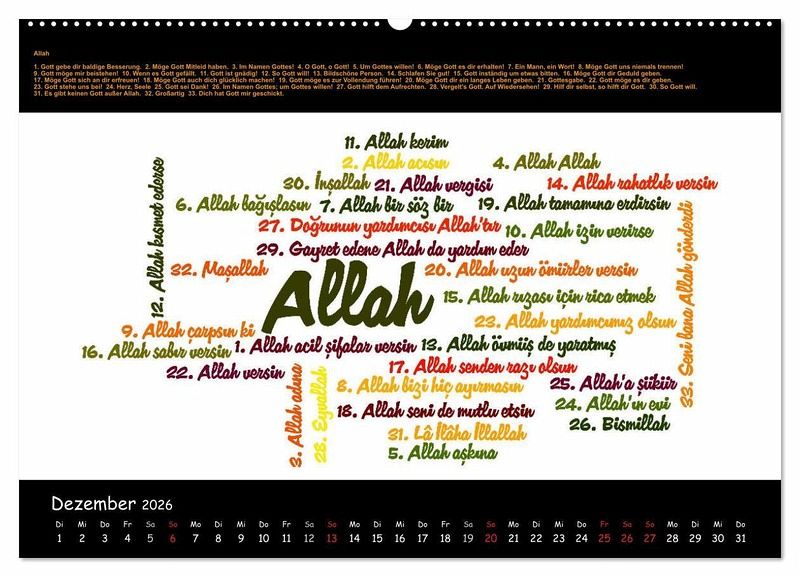 Allah
1. Gott gebe dir baldige Besserung. 2. Möge Gott Mitleid haben. 3. Im Namen Gottes! 4. O Gott, o Gott! 5. Um Gottes willen! 6. Möge Gott es dir erhalten! 7. Ein Mann, ein Wort! 8. Möge Gott uns niemals trennen!
9. Gott möge mir beistehen! 10. Wenn es Gott gefällt. 11. Gott ist gnädig! 12. So Gott will! 13. Bildschöne Person. 14. Schlafen Sie gut! 15. Gott inständig um etwas bitten. 16. Möge Gott dir Geduld geben.
17. Möge Gott sich an dir erfreuen! 18. Möge Gott auch dich glücklich machen! 19. Gott möge es zur Vollendung führen! 20. Möge Gott dir ein langes Leben geben. 21. Gottesgabe. 22. Möge Gott es dir geben.
23. Gott stehe uns bei! 24. Herz, Seele 25. Gott sei Dank! 26. Im Namen Gottes; um Gottes willen! 27. Gott hilft dem Aufrechten. 28. Vergelt's Gott. Auf Wiedersehen! 29. Hilf dir selbst, so hilft dir Gott. 30. So Gott will.
31. Es gibt keinen Gott außer Allah. 32. Großartig 33. Dich hat Gott mir geschickt.
11. Allah kerim
2. Allah acısın
4. Allah Allah
30. İnşallah
21. Allah vergisi
14. Allah rahatlık versin
6. Allah bağışlasın
7. Allah bir söz bir
19. Allah tamamına erdirsin
27. Doğrunun yardımcısı Allah'tır
10. Allah izin verirse
29. Gayret edene Allah da yardım eder
12. Allah kısmet ederse
32. Maşallah
20. Allah uzun ömürler versin
Allah
15. Allah rızası için rica etmek
33. Seni bana Allah gönderdi
23. Allah yardımcımız olsun
9. Allah çarpsın ki
16. Allah sabır versin
1. Allah acil şifalar versin
13. Allah övmüş de yaratmış
22. Allah versin
17. Allah senden razı olsun
3. Allah adına
28. Eyvallah
8. Allah bizi hiç ayırmasın
25. Allah'a şükür
18. Allah seni de mutlu etsin
24. Allah'ın evi
26. Bismillah
31. Lâ İlâha İllallah
5. Allah aşkına
Dezember 2026
Di Mi Do Fr Sa So Mo Di Mi Do Fr Sa So Mo Di Mi Do Fr Sa So Mo Di Mi Do Fr Sa So Mo Di Mi Do
1 2 3 4 5 6 7 8 9 10 11 12 13 14 15 16 17 18 19 20 21 22 23 24 25 26 27 28 29 30 31